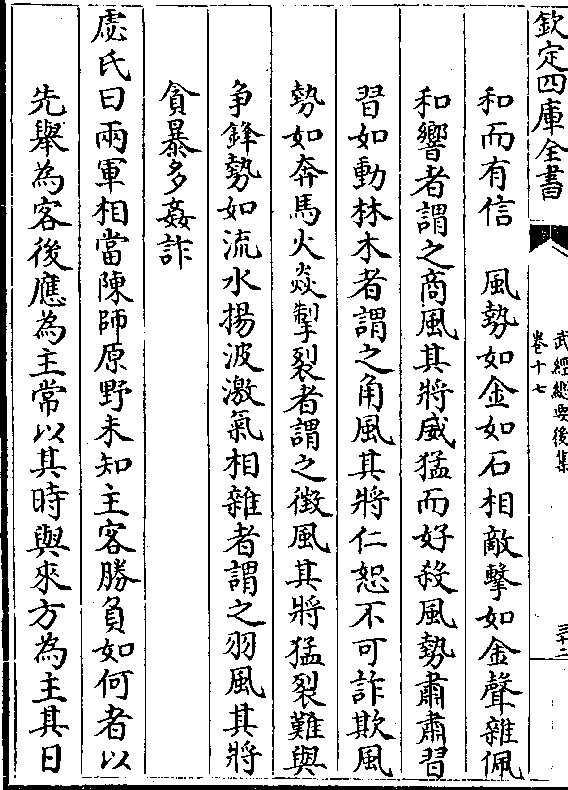 欽定四庫全書
武經總要後集
卷十七
和而有信　風勢如金如石相敵擊如金聲雜佩
和響者謂之商風其將威猛而好殺風勢肅肅習
習如動林木者謂之角風其將仁恕不可詐欺風
勢如奔馬火焱掣裂者謂之徵風其將猛裂難與
争鋒勢如流水揚波激氣相雜者謂之羽風其將
貪暴多姦詐
虙氏曰兩軍相當陳師原野未知主客勝負如何者以
先舉為客後應為主常以其時與來方為主其日